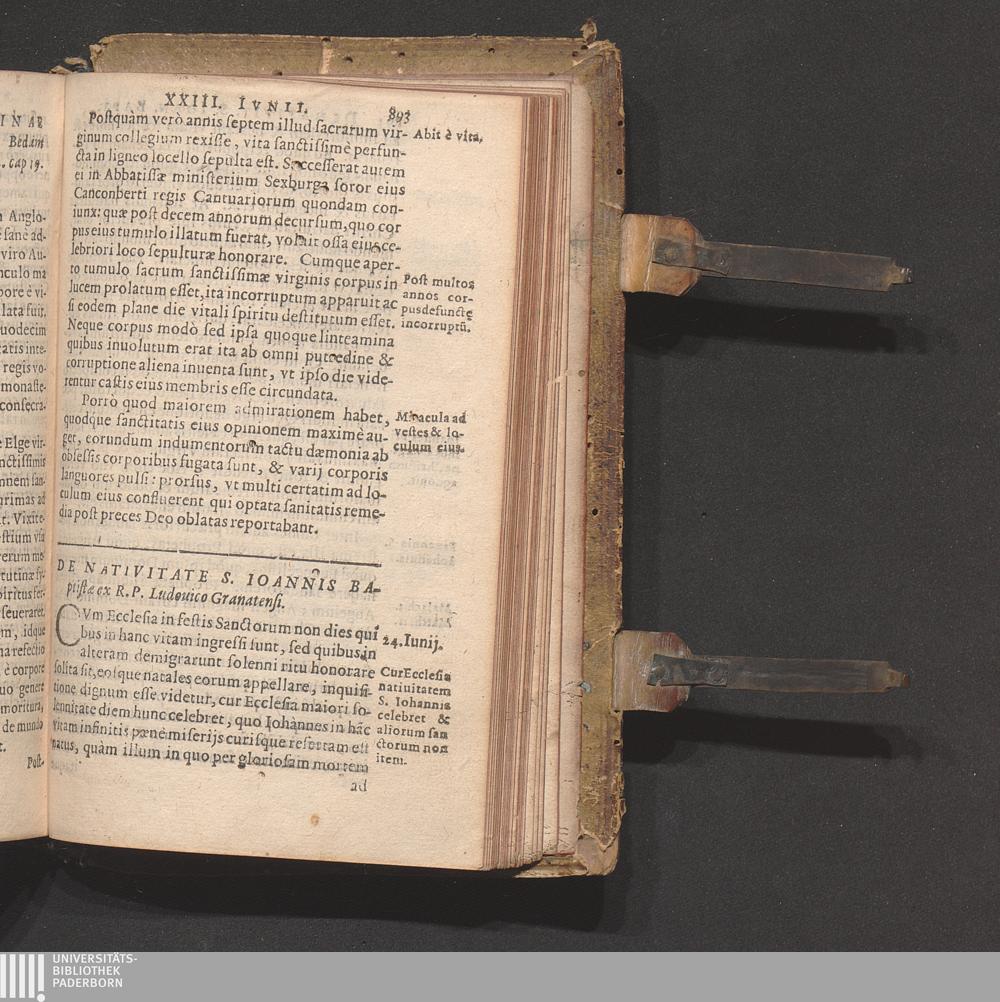 INAR
Bedam
. cap 19.
Anglo-
sanè ad-
viro Au-
nculo ma
pore è vi-
lata fuit,
uodecim
tatis inte-
regis vo-
monaste-
consecra-
Elge vir-
nctissimis
mnem san-
grimas ad
t. Vixit e-
stium vsu
erum me
tutinæ sy-
piritus fer-
seueraret.
m, idque
na refectio
è corpore
uo genere
moritura,
de mundo
t.
Post-
XXIII. IVNII. 893
Postquàm verò annis septem illud sacrarum vir-
ginum collegium rexisse, vita sanctissimè perfun-
cta in ligneo locello sepulta est. Successerat autem
ei in Abbatissæ ministerium Sexburga soror eius
Canconberti regis Cantuariorum quondam con-
iunx: quæ post decem annorum decursum, quo cor
pus eius tumulo illatum fuerat, voluit ossa eius ce-
lebriori loco sepulturæ honorare. Cumque aper-
to tumulo sacrum sanctissimæ virginis corpus in
lucem prolatum esset, ita incorruptum apparuit ac
si eodem plane die vitali spiritu destitutum esset.
Neque corpus modò sed ipsa quoque linteamina
quibus inuolutum erat ita ab omni putredine &
corruptione aliena inuenta sunt, vt ipso die vide-
rentur castis eius membris esse circundata.
Porrò quod maiorem admirationem habet,
quodque sanctitatis eius opinionem maximè au-
get, eorundum indumentorum tactu dæmonia ab
obsessis corporibus fugata sunt, & varij corporis
languores pulsi: prorsus, vt multi certatim ad lo-
culum eius confluerent qui optata sanitatis reme-
dia post preces Deo oblatas reportabant.
Abit è vita,
Post multos
annos cor-
pus defunctę
incorruptũ.
Miracula ad
vestes & lo-
culum eius.
DE NATIVITATE S. IOANNIS BA-
ptistæ ex R.P. Ludouico Granatensi.
CVm Ecclesia in festis Sanctorum non dies qui
bus in hanc vitam ingressi sunt, sed quibus in
alteram demigrarunt solenni ritu honorare
solita sit, eosque natales eorum appellare, inquisi-
tione dignum esse videtur, cur Ecclesia maiori so-
lennitate diem hunc celebret, quo Iohannes in hãc
vitam infinitis pœne miserijs curisque refertam est
natus, quàm illum in quo per gloriosam mortem
ad
24. Iunij.
Cur Ecclesia
natiuitatem
S. Iohannis
celebret &
aliorum san
ctorum non
item.
UNIVERSITÄTS-
BIBLIOTHEK
PADERBORN